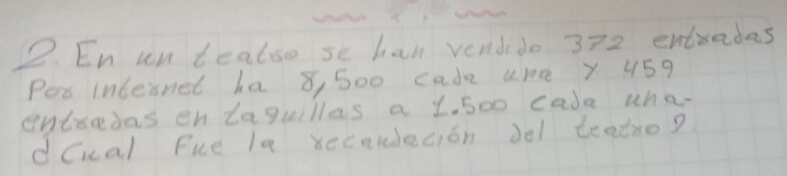 2. En un teatso se han vendido 372 entradas
Por internet ha 8,500 cada una y 459
entradas en taguillas a 1.500 cada una.
¿Cual Fue la recaudación del teatro?